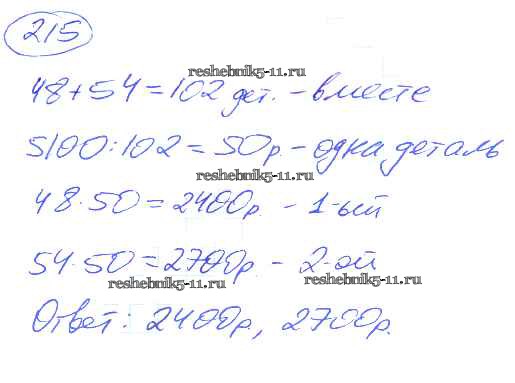 215
reshebnik5-11.ru
48+54=102 дет. - вместе
5100:102=50р. - одна деталь
reshebnik5-11.ru
48·50=2400р. - 1-ый
54·50=2700р. - 2-ой
reshebnik5-11.ru
Ответ: 2400р, 2700р.